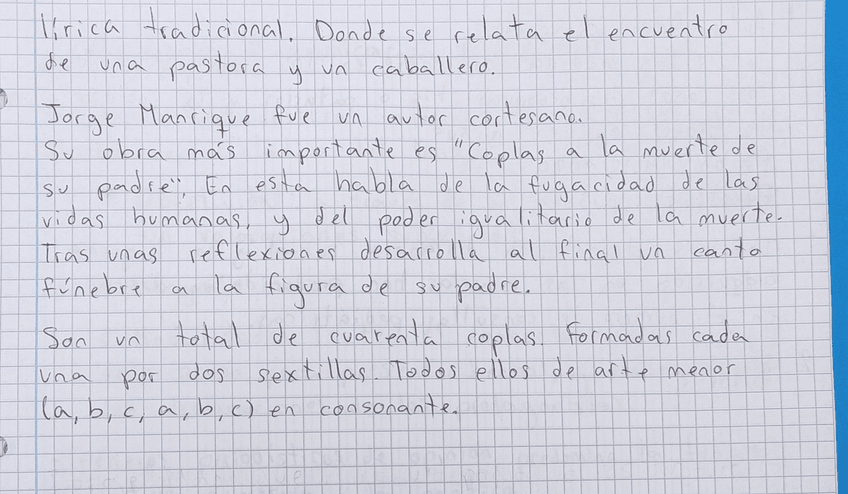 lírica tradicional. Donde se relata el encuentro
de una pastora y un caballero.
Jorge Manrique fue un autor cortesano.
Su obra más importante es "Coplas a la muerte de
su padre". En esta habla de la fugacidad de las
vidas humanas, y del poder igualitario de la muerte.
Tras unas reflexiones desarrolla al final un canto
fúnebre a la figura de su padre.
Son un total de cuarenta coplas. Formadas cada
una por dos sextillas. Todos ellos de arte menor
(a, b, c, a, b, c) en consonante.